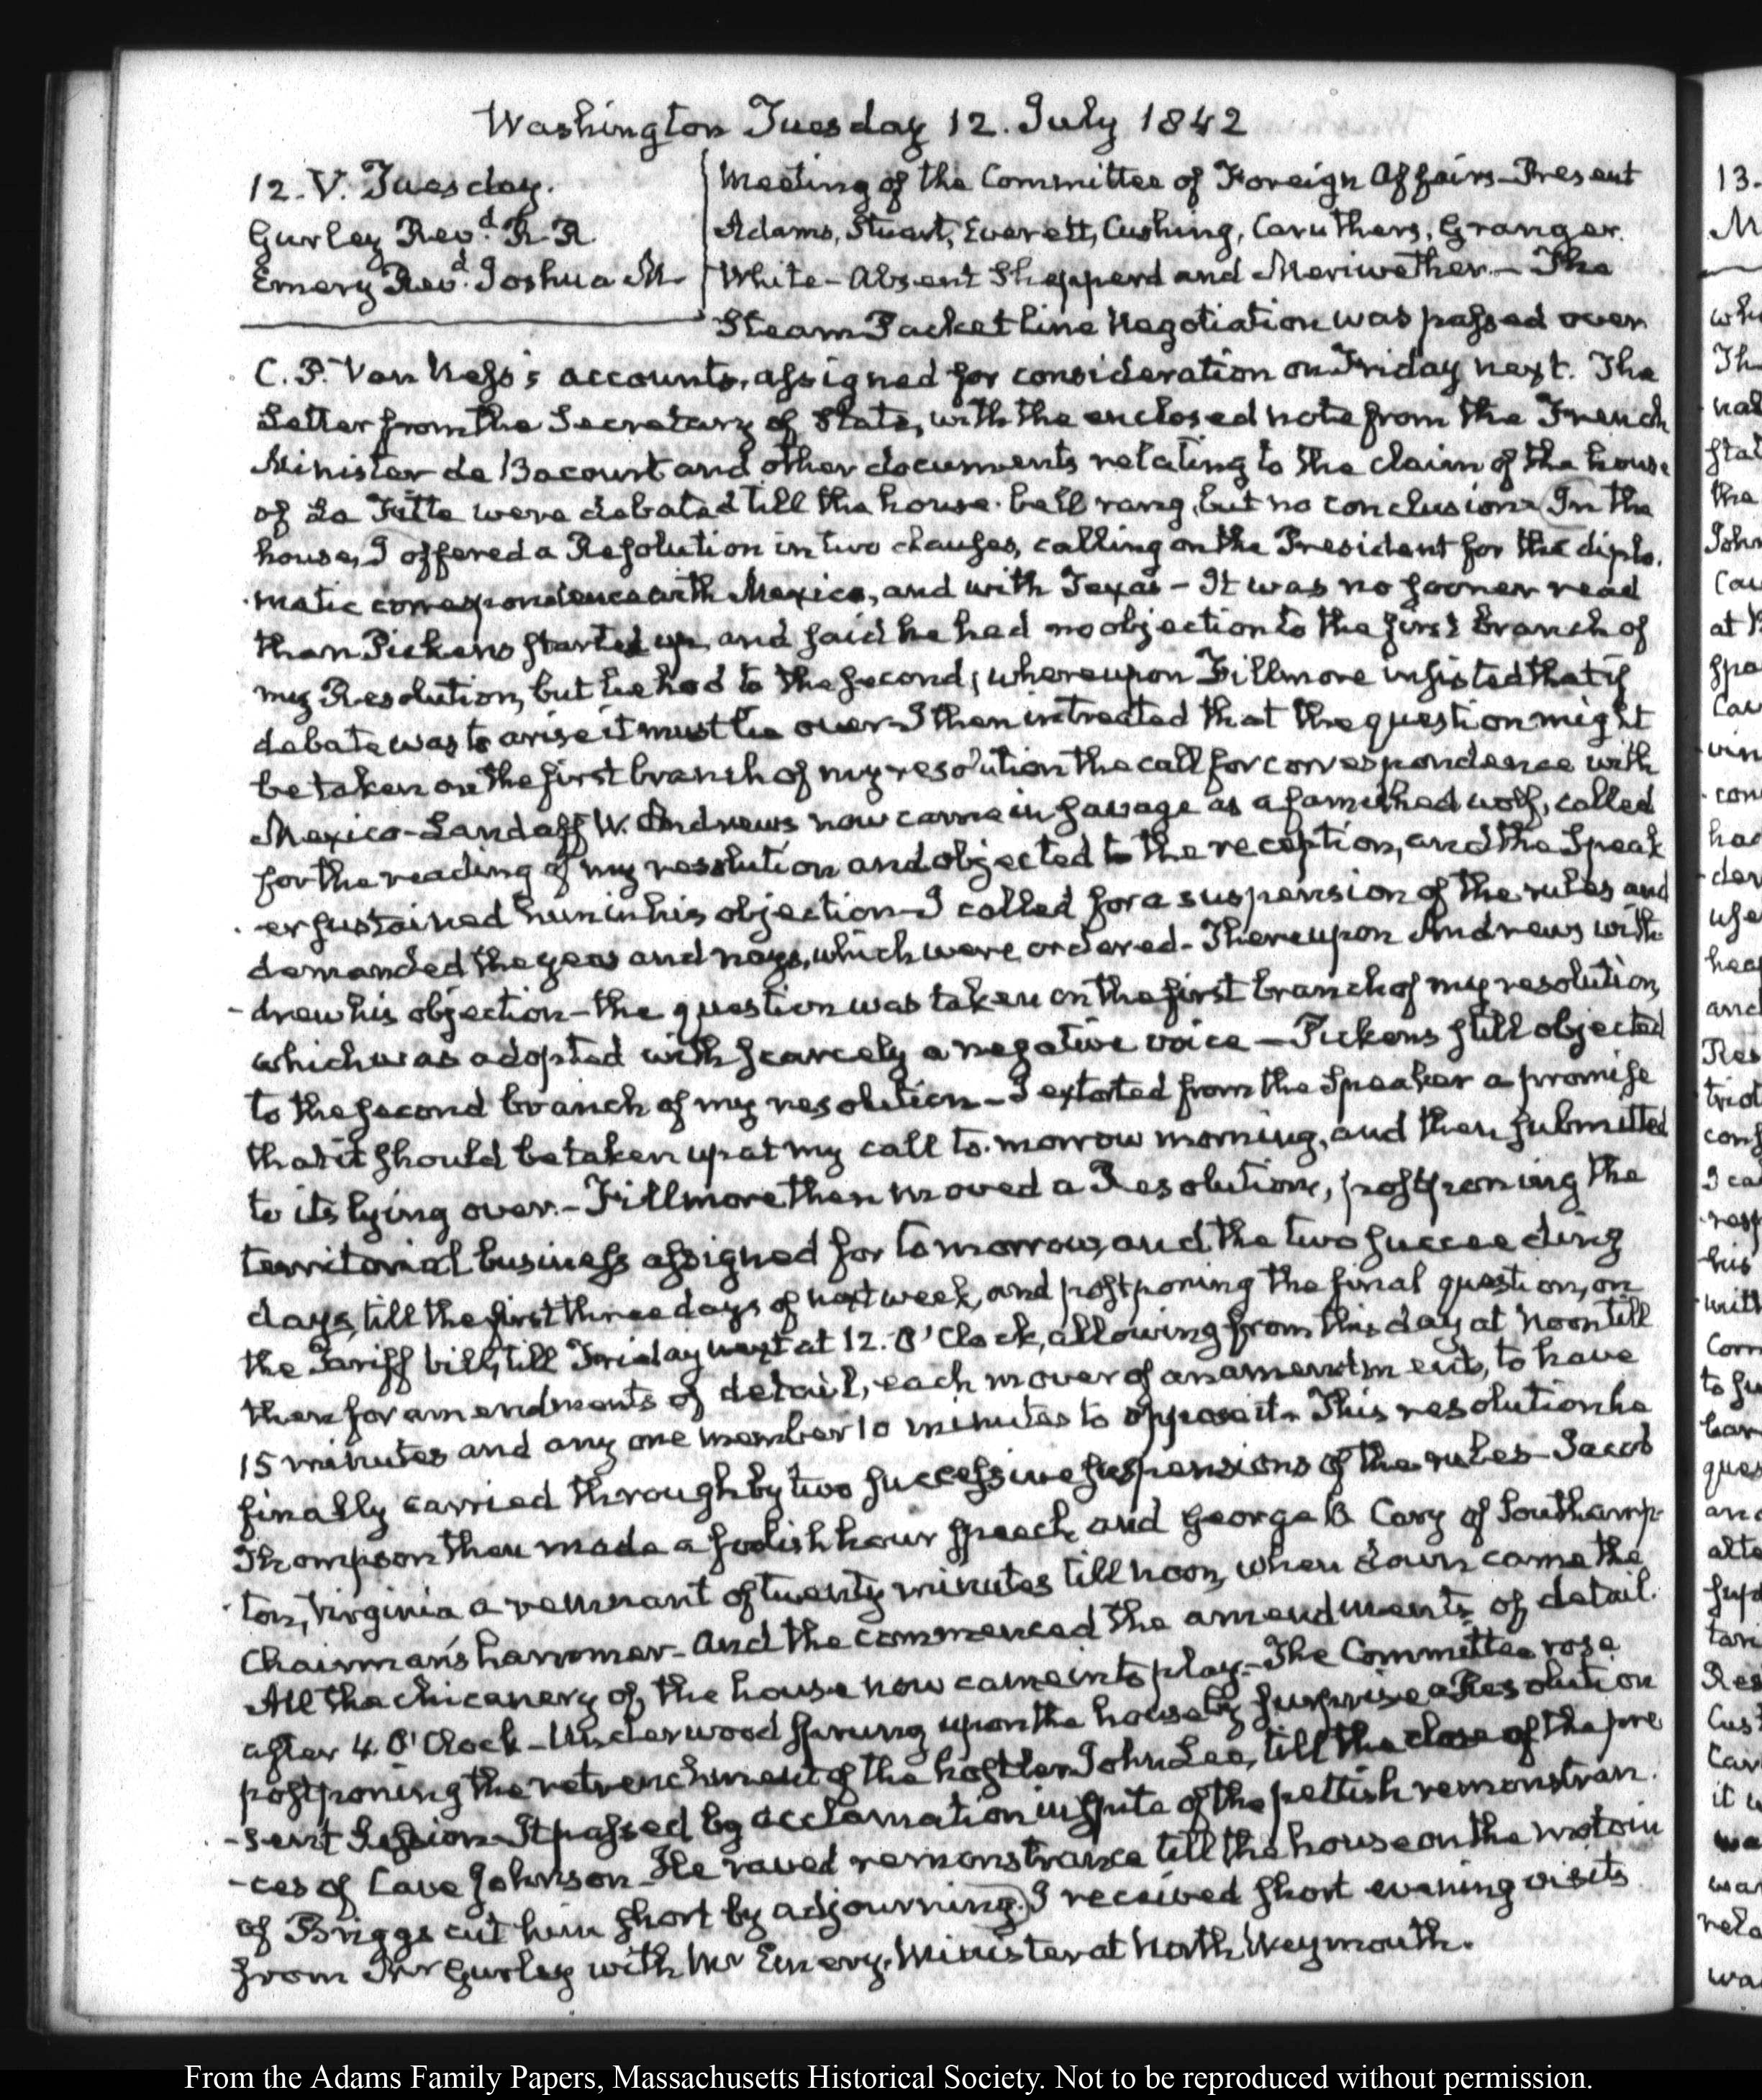 Washington Tuesday 12. July 1842
12. V. Tuesday.
Gurley Rev.d R. R
Emery Rev.d Joshua M.
Meeting of the Committee of Foreign Affairs—Present
Adams, Stuart, Everett, Cushing, Caruthers, Granger.
White—Absent Shepperd and Meriwether.—The
Steam Packet line Negotiation was passed over
C. P. Van Ness's accounts, assigned for consideration on Friday next. The
Letter from the Secretary of State, with the enclosed note from the French
Minister de Bacourt and other documents relating to the claim of the house
of La Fitte were debated till the house-bell rang, but no conclusion. In the
house, I offered a Resolution in two clauses, calling on the President for the diplo-
-matic correspondence with Mexico, and with Texas—It was no sooner read
than Pickens started up, and said he had no objection to the first branch of
my Resolution, but he had to the second; whereupon Fillmore insisted that if
debate was to arise it must lie over—I then intreated that the question might
be taken on the first branch of my resolution the call for correspondence with
Mexico—Landaff W. Andrews now came in savage as a famished wolf, called
for the reading of my resolution and objected to the reception, and the Speak
-er sustained him in his objection—I called for a suspension of the rules and
demanded the yeas and nays, which were ordered—Thereupon Andrews with
-drew his objection—the question was taken on the first branch of my resolution,
which was adopted with scarcely a negative voice—Pickens still objected
to the second branch of my resolution—I extorted from the Speaker a promise
that it should be taken up at my call to-morrow morning, and then submitted
to its lying over.—Fillmore then moved a Resolution, postponing the
territorial business assigned for tomorrow, and the two succeeding
days, till the first three days of next week, and postponing the final question, on
the Tariff bill, till Friday next at 12. O'Clock, allowing from this day at Noon till
then for amendments of detail, each mover of an amendment, to have
15 minutes and any one member 10 minutes to oppose it. This resolution he
finally carried through by two successive suspensions of the rules—Jacob
Thompson then made a foolish hour speech and George B Cary of Southamp-
-ton, Virginia a remnant of twenty minutes till noon, when down came the
Chairman's hammer—And the commenced the amendments of detail.
All the chicanery of the house now came into play—The Committee rose
after 4. O'Clock—Underwood sprung upon the house by surprise a Resolution
postponing the retrenchment of the hostler John Lee, till the close of the pre
-sent Session—It passed by acclamation in spite of the pettish remonstran-
-ces of Cave Johnson—He raved remonstrance till the house on the motion
of Briggs cut him short by adjourning. I received short evening visits
from Mr Gurley with Mr Emery, Minister at North Weymouth.
From the Adams Family Papers, Massachusetts Historical Society. Not to be reproduced without permission.